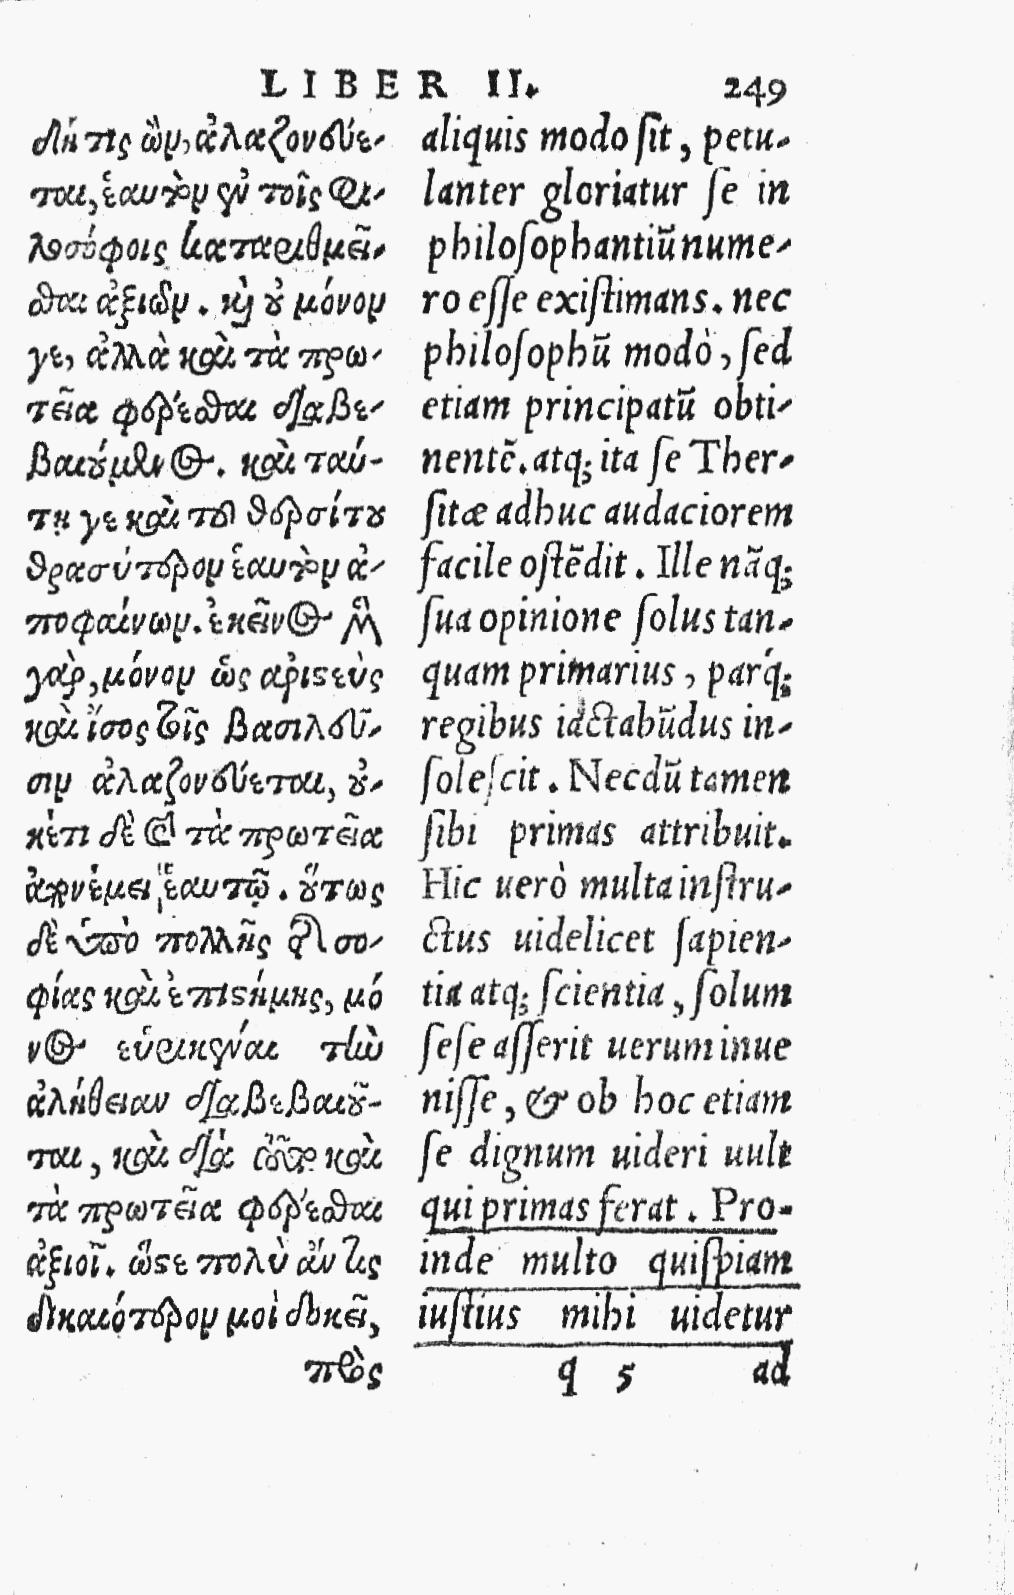 LIBER II. 249
δή τις ὢν, ἀλαζονεύε-
ται, ἑαυτὸν ἐν τοῖς φι-
λοσόφοις καταριθμεῖ-
σθαι ἀξιῶν. καὶ οὐ μόνον
γε, ἀλλὰ καὶ τὰ πρω-
τεῖα φέρεσθαι διαβε-
βαιούμενος. καὶ ταύ-
τῃ γε καὶ τοῦ θερσίτου
θρασύτερον ἑαυτὸν ἀ-
ποφαίνων. ἐκεῖνος μὲν
γὰρ, μόνον ὡς ἀριστεὺς
καὶ ἴσος τοῖς βασιλεῦ-
σιν ἀλαζονεύεται, οὐ-
κέτι δὲ καὶ τὰ πρωτεῖα
ἀπονέμει ἑαυτῷ. οὕτως
δὲ ὑπὸ πολλῆς δὴ σο-
φίας καὶ ἐπιστήμης, μό
νος εὑρηκέναι τὴν
ἀλήθειαν διαβεβαιοῦ-
ται, καὶ διὰ τοῦτο καὶ
τὰ πρωτεῖα φέρεσθαι
ἀξιοῖ. ὥστε πολὺ ἄν τις
δικαιότερον μοὶ δοκεῖ,
πρὸς
aliquis modo ſit, petu-
lanter gloriatur ſe in
philoſophantiũ nume-
ro eſſe exiſtimans. nec
philoſophũ modò, ſed
etiam principatũ obti-
nentẽ. atq; ita ſe Ther-
ſitæ adhuc audaciorem
facile oſtẽdit. Ille nãq;
ſua opinione ſolus tan-
quam primarius, parq́;
regibus iactabũdus in-
ſoleſcit. Necdũ tamen
ſibi primas attribuit.
Hic uerò multa inſtru-
ctus uidelicet ſapien-
tia atq; ſcientia, ſolum
ſeſe aſſerit uerum inue
niſſe, & ob hoc etiam
ſe dignum uideri uult
qui primas ferat. Pro-
inde multo quiſpiam
iuſtius mihi uidetur
q 5 ad